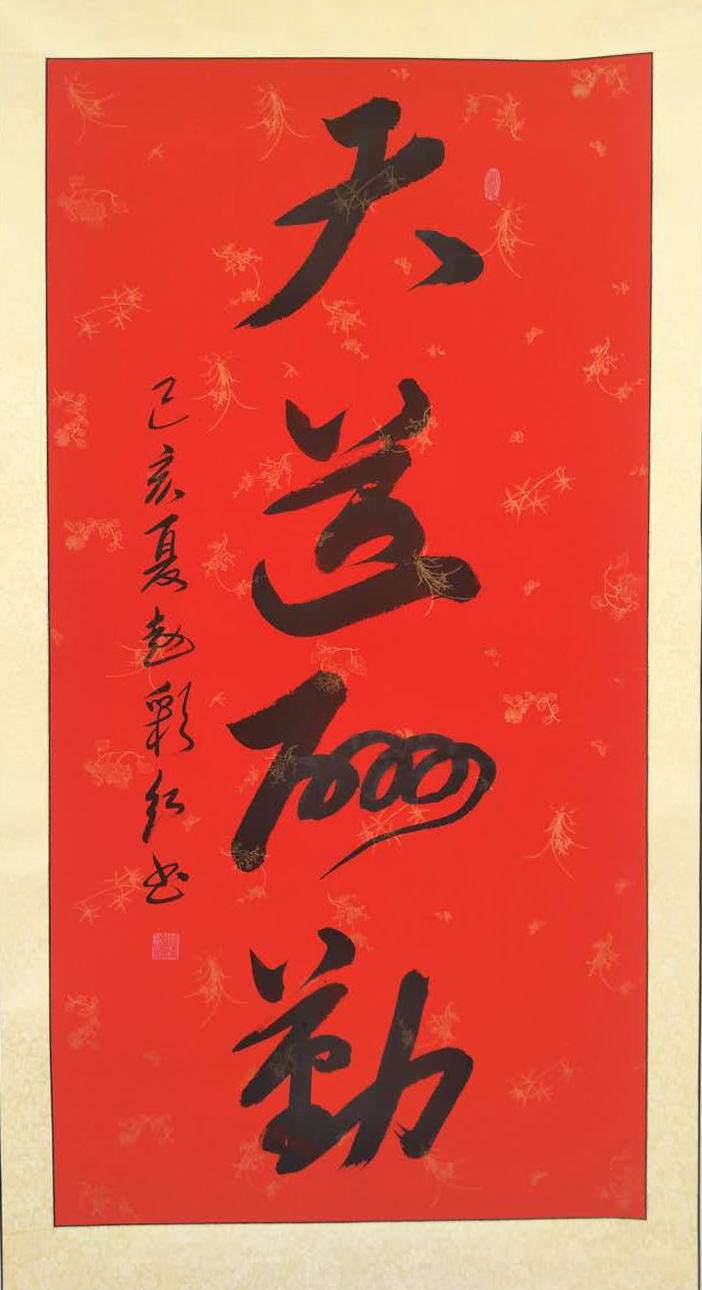 天道酬勤
己亥夏赵彩红书